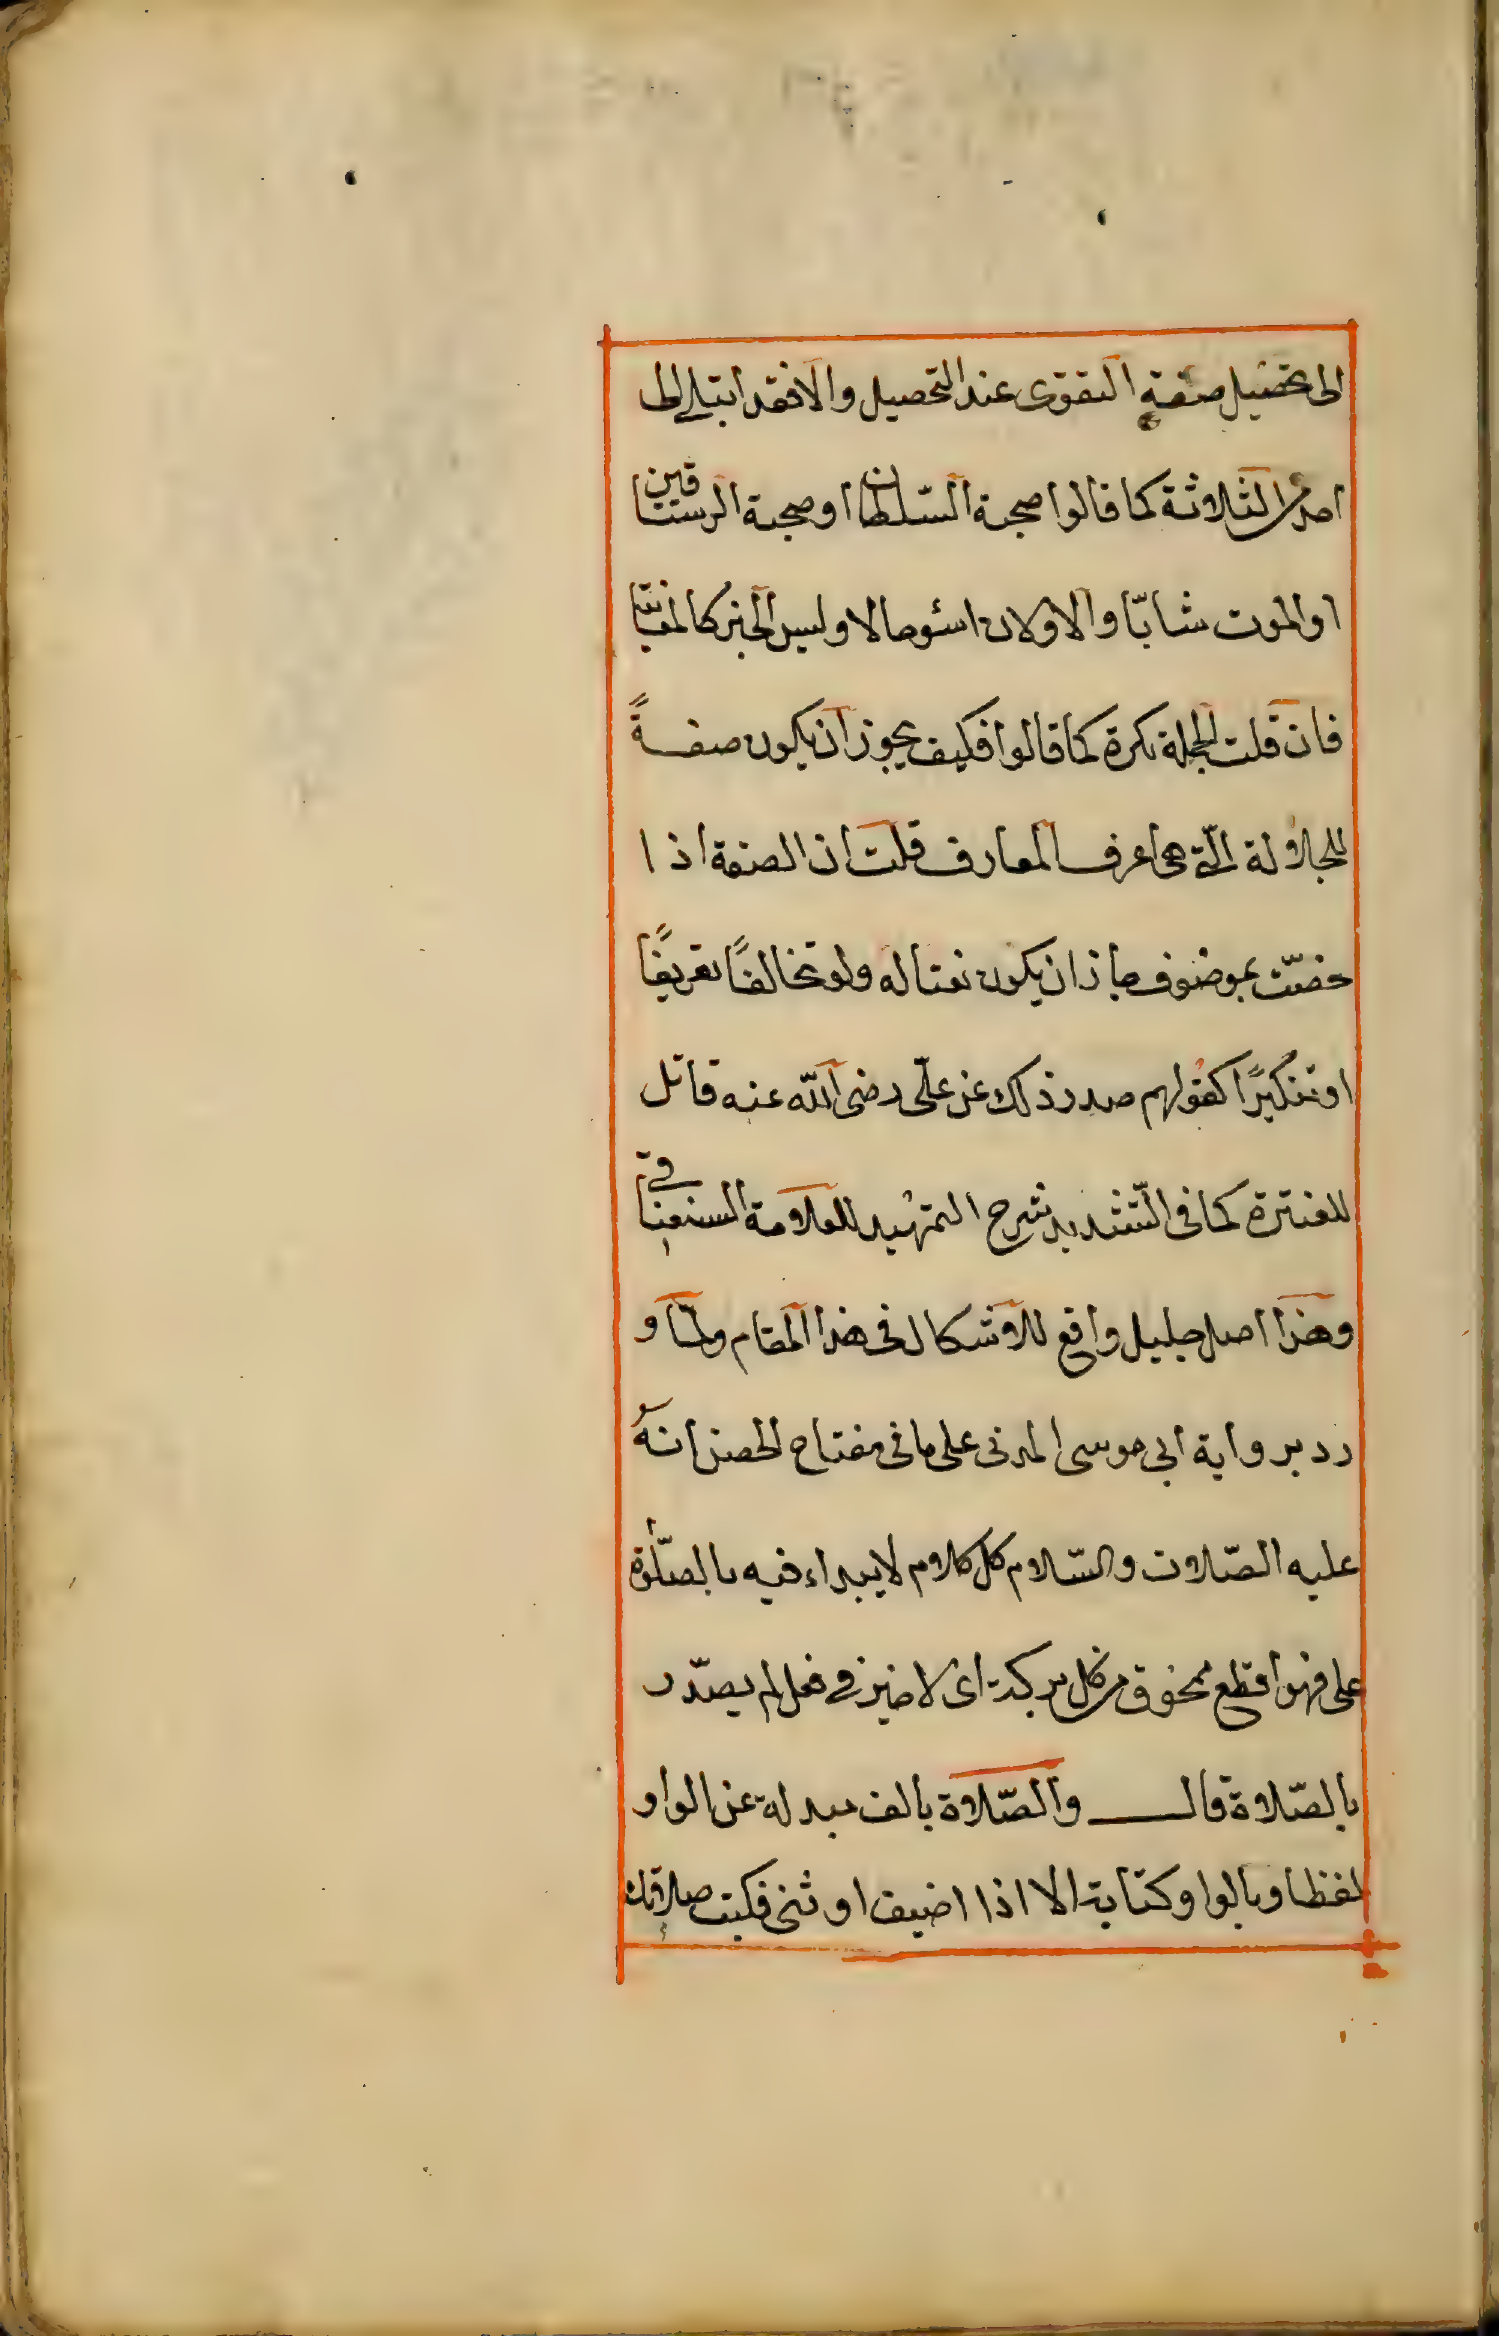 الى تحصيل صفة التقوى عند التحصيل والا فقد ابتلى الى
احد من الثلاثة كما قالوا صحبة السّلطان او صحبة الرستاقين
او الموت شابّا والاولان اسئو حالا وليس الخبر كالمعاينة
فان قلت الجملة نكرة كما قالوا فكيف يجوز ان يكون صفـــةً
للجلالة الّتي هي اعرف المعارف قلت ان الصفة اذا
خصّت بموضوف جاز ان يكون نعتا له ولو تخالفًا تعريفًا
او تنكيرًا كقولهم صدر ذلك عن علّى رضى اللّه عنه قاتل
للعنترة كما فى التّشديد شرح التمهيد للعلامة السنغناقي
وهذا اصل جليل واقع للاشكال فى هذا المقام ولمّا و
رد برواية ابى موسى المدنى على ما فى مفتاح الحصن انهُ
عليه الصّلات والسّلام كل كلام لايبداء فيه بالصّلوة
على فهو اقطع ممحوق من كل بركة اى لا خير في فعل لم يصدّر
بالصّلاة قالـــــ والصّلاة بالف مبدلة عن الواو
لفظا وبالواو كتابة الا اذا اضيف او ثنى فكتبت صلاتك